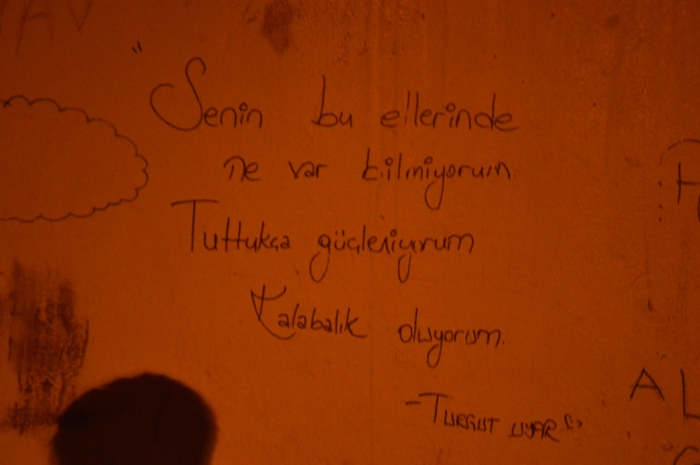 "Senin bu ellerinde
ne var bilmiyorum
Tuttukça güçleniyorum
Kalabalık oluyorum.
-TURGUT UYAR
AL